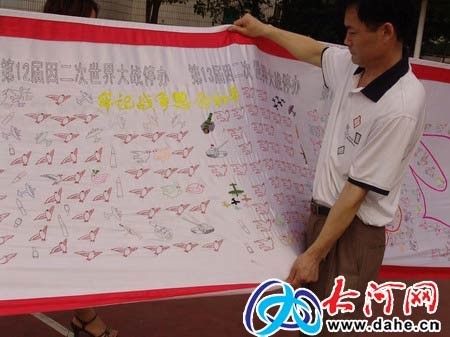 第12届因二次世界大战停办
第13届因二次世界大战停办
牢记战争
大河网
www.dahe.cn